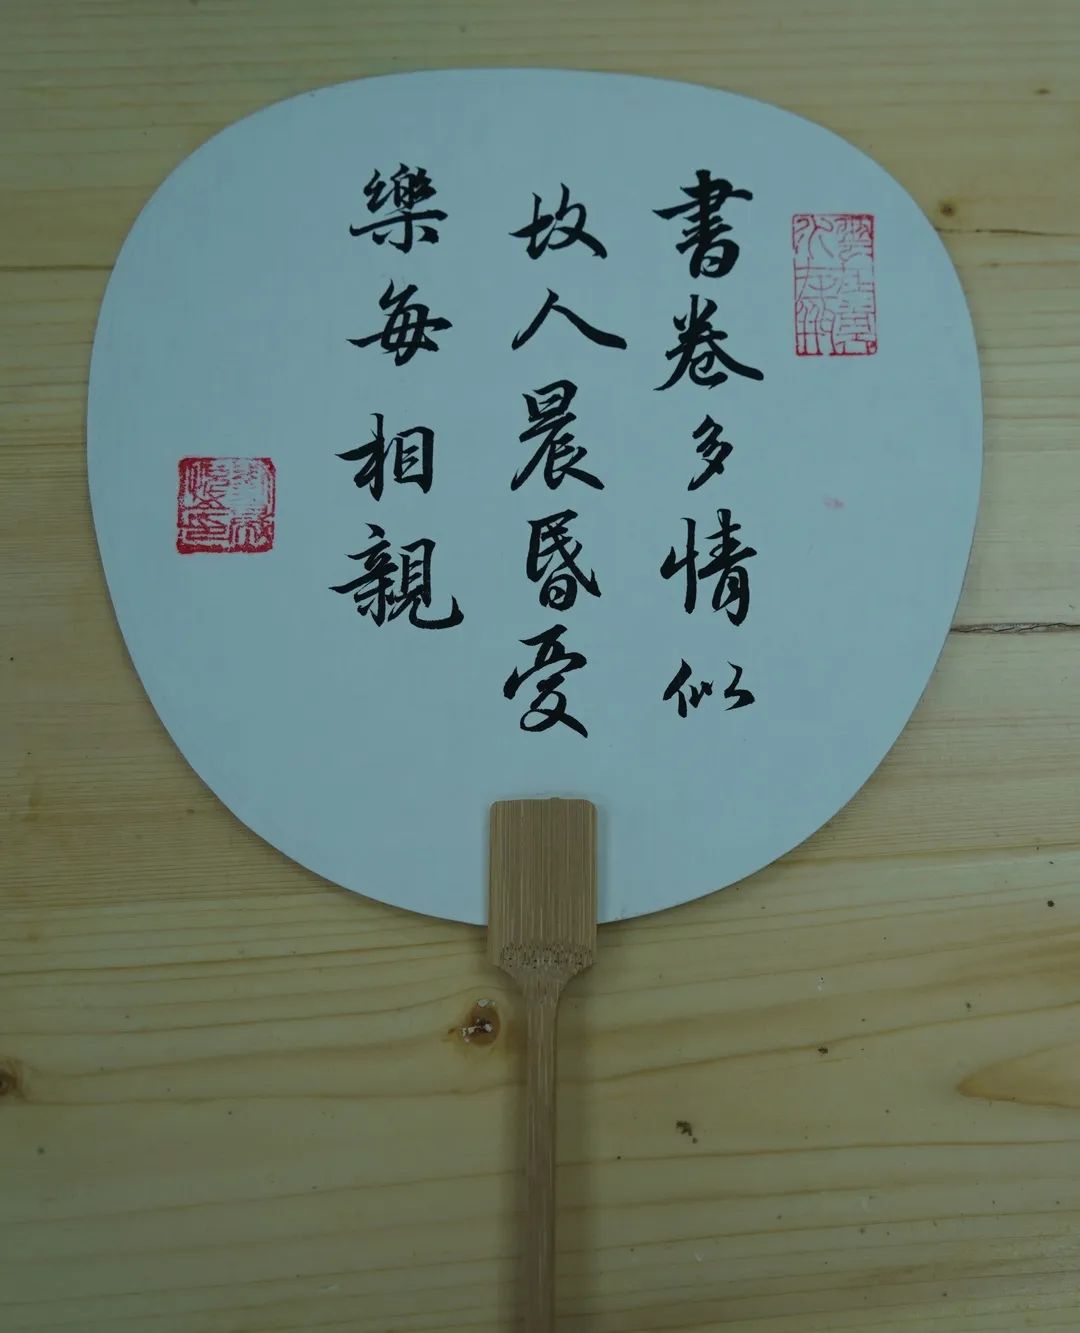 書卷多情似
故人晨昏憂
樂每相親